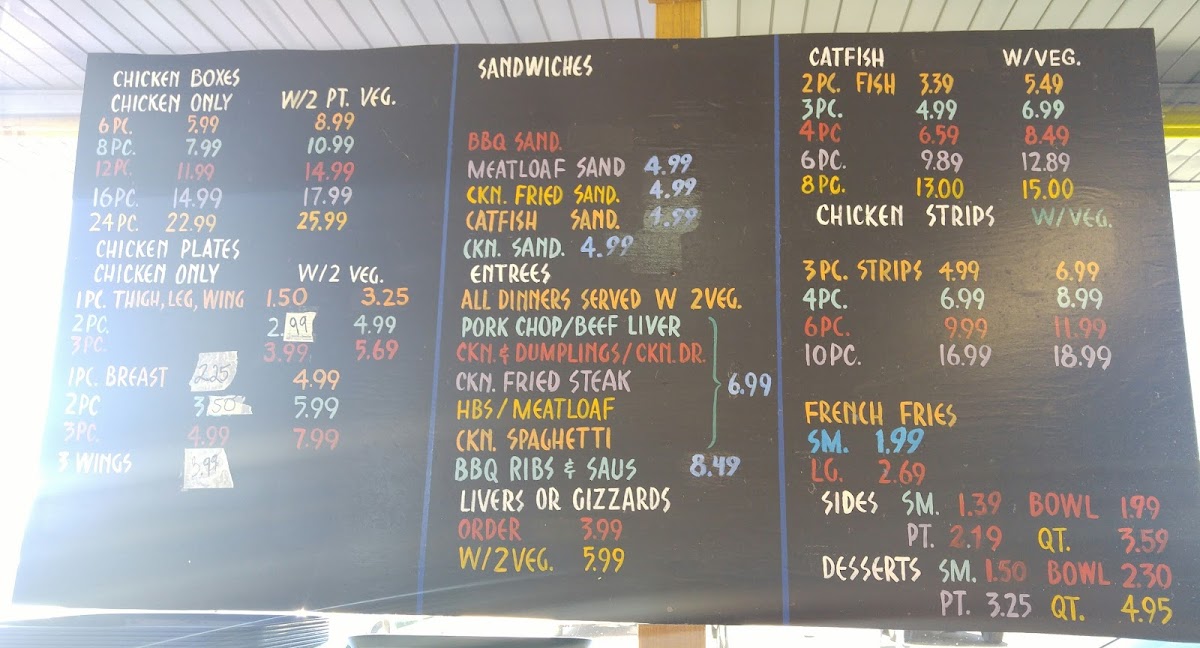 CHICKEN BOXES
CHICKEN ONLY W/2 PT. VEG.
6 PC. 5.99 8.99
8 PC. 7.99 10.99
12 PC. 11.99 14.99
16 PC. 14.99 17.99
24 PC. 22.99 25.99
CHICKEN PLATES
CHICKEN ONLY W/2 VEG.
1 PC. THIGH, LEG, WING 1.50 3.25
2 PC. 2.99 4.99
3 PC. 3.99 5.69
1 PC. BREAST 2.25 4.99
2 PC 3.50 5.99
3 PC. 4.99 7.99
3 WINGS
SANDWICHES
BBQ SAND.
MEATLOAF SAND 4.99
CKN. FRIED SAND. 4.99
CATFISH SAND. 4.99
CKN. SAND. 4.99
ENTREES
ALL DINNERS SERVED W 2VEG.
PORK CHOP/BEEF LIVER
CKN. & DUMPLINGS/CKN. DR.
CKN. FRIED STEAK 6.99
HBS/MEATLOAF
CKN. SPAGHETTI
BBQ RIBS & SAUS 8.49
LIVERS OR GIZZARDS
ORDER 3.99
W/2VEG. 5.99
CATFISH W/VEG.
2 PC. FISH 3.39 5.49
3PC. 4.99 6.99
4PC 6.59 8.49
6PC. 9.89 12.89
8PC. 13.00 15.00
CHICKEN STRIPS W/VEG.
3PC. STRIPS 4.99 6.99
4PC. 6.99 8.99
6PC. 9.99 11.99
10PC. 16.99 18.99
FRENCH FRIES
SM. 1.99
LG. 2.69
SIDES SM. 1.39 BOWL 1.99
PT. 2.19 QT. 3.59
DESSERTS SM. 1.50 BOWL 2.30
PT. 3.25 QT. 4.95